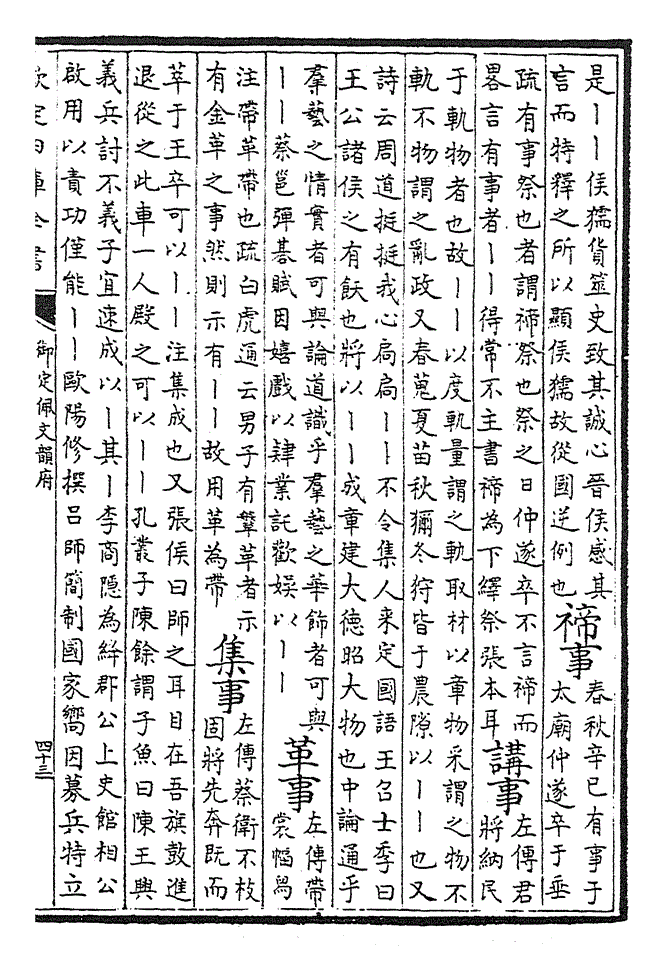 是丨丨侯獳貨筮史致其誠心晉侯感其
言而特釋之所以顯侯獳故從國逆例也
禘事
春秋辛已有事于
太廟仲遂卒于垂
疏有事祭也者謂禘祭也祭之日仲遂卒不言禘而
畧言有事者丨丨得常不主書禘為下繹祭張本耳
講事
左傳君
將納民
于軌物者也故丨丨以度軌量謂之軌取材以章物采謂之物不
軌不物謂之亂政又春蒐夏苗秋獮冬狩皆于農隙以丨丨也又
詩云周道挺挺我心扃扃丨丨不令集人來定國語王召士季曰
王公諸侯之有飫也將以丨丨成章建大德昭大物也中論通乎
羣藝之情實者可與論道識乎羣藝之華飾者可與
丨丨蔡邕彈碁賦因嬉戲以肄業託歡娱以丨丨
革事
左傳帶
裳幅舄
注帶革帶也疏白虎通云男子有鞶革者示
有金革之事然則示有丨丨故用革為帶
集事
左傳蔡衛不枝
固將先奔既而
萃于王卒可以丨丨注集成也又張侯曰師之耳目在吾旗鼓進
退從之此車一人殿之可以丨丨孔叢子陳餘謂子魚曰陳王興
義兵討不義子宜速成以丨其丨李商隱為絳郡公上史館相公
啟用以責功僅能丨丨歐陽修撰吕師簡制國家嚮因募兵特立
欽定四庫全書
御定佩文韻府
四十三